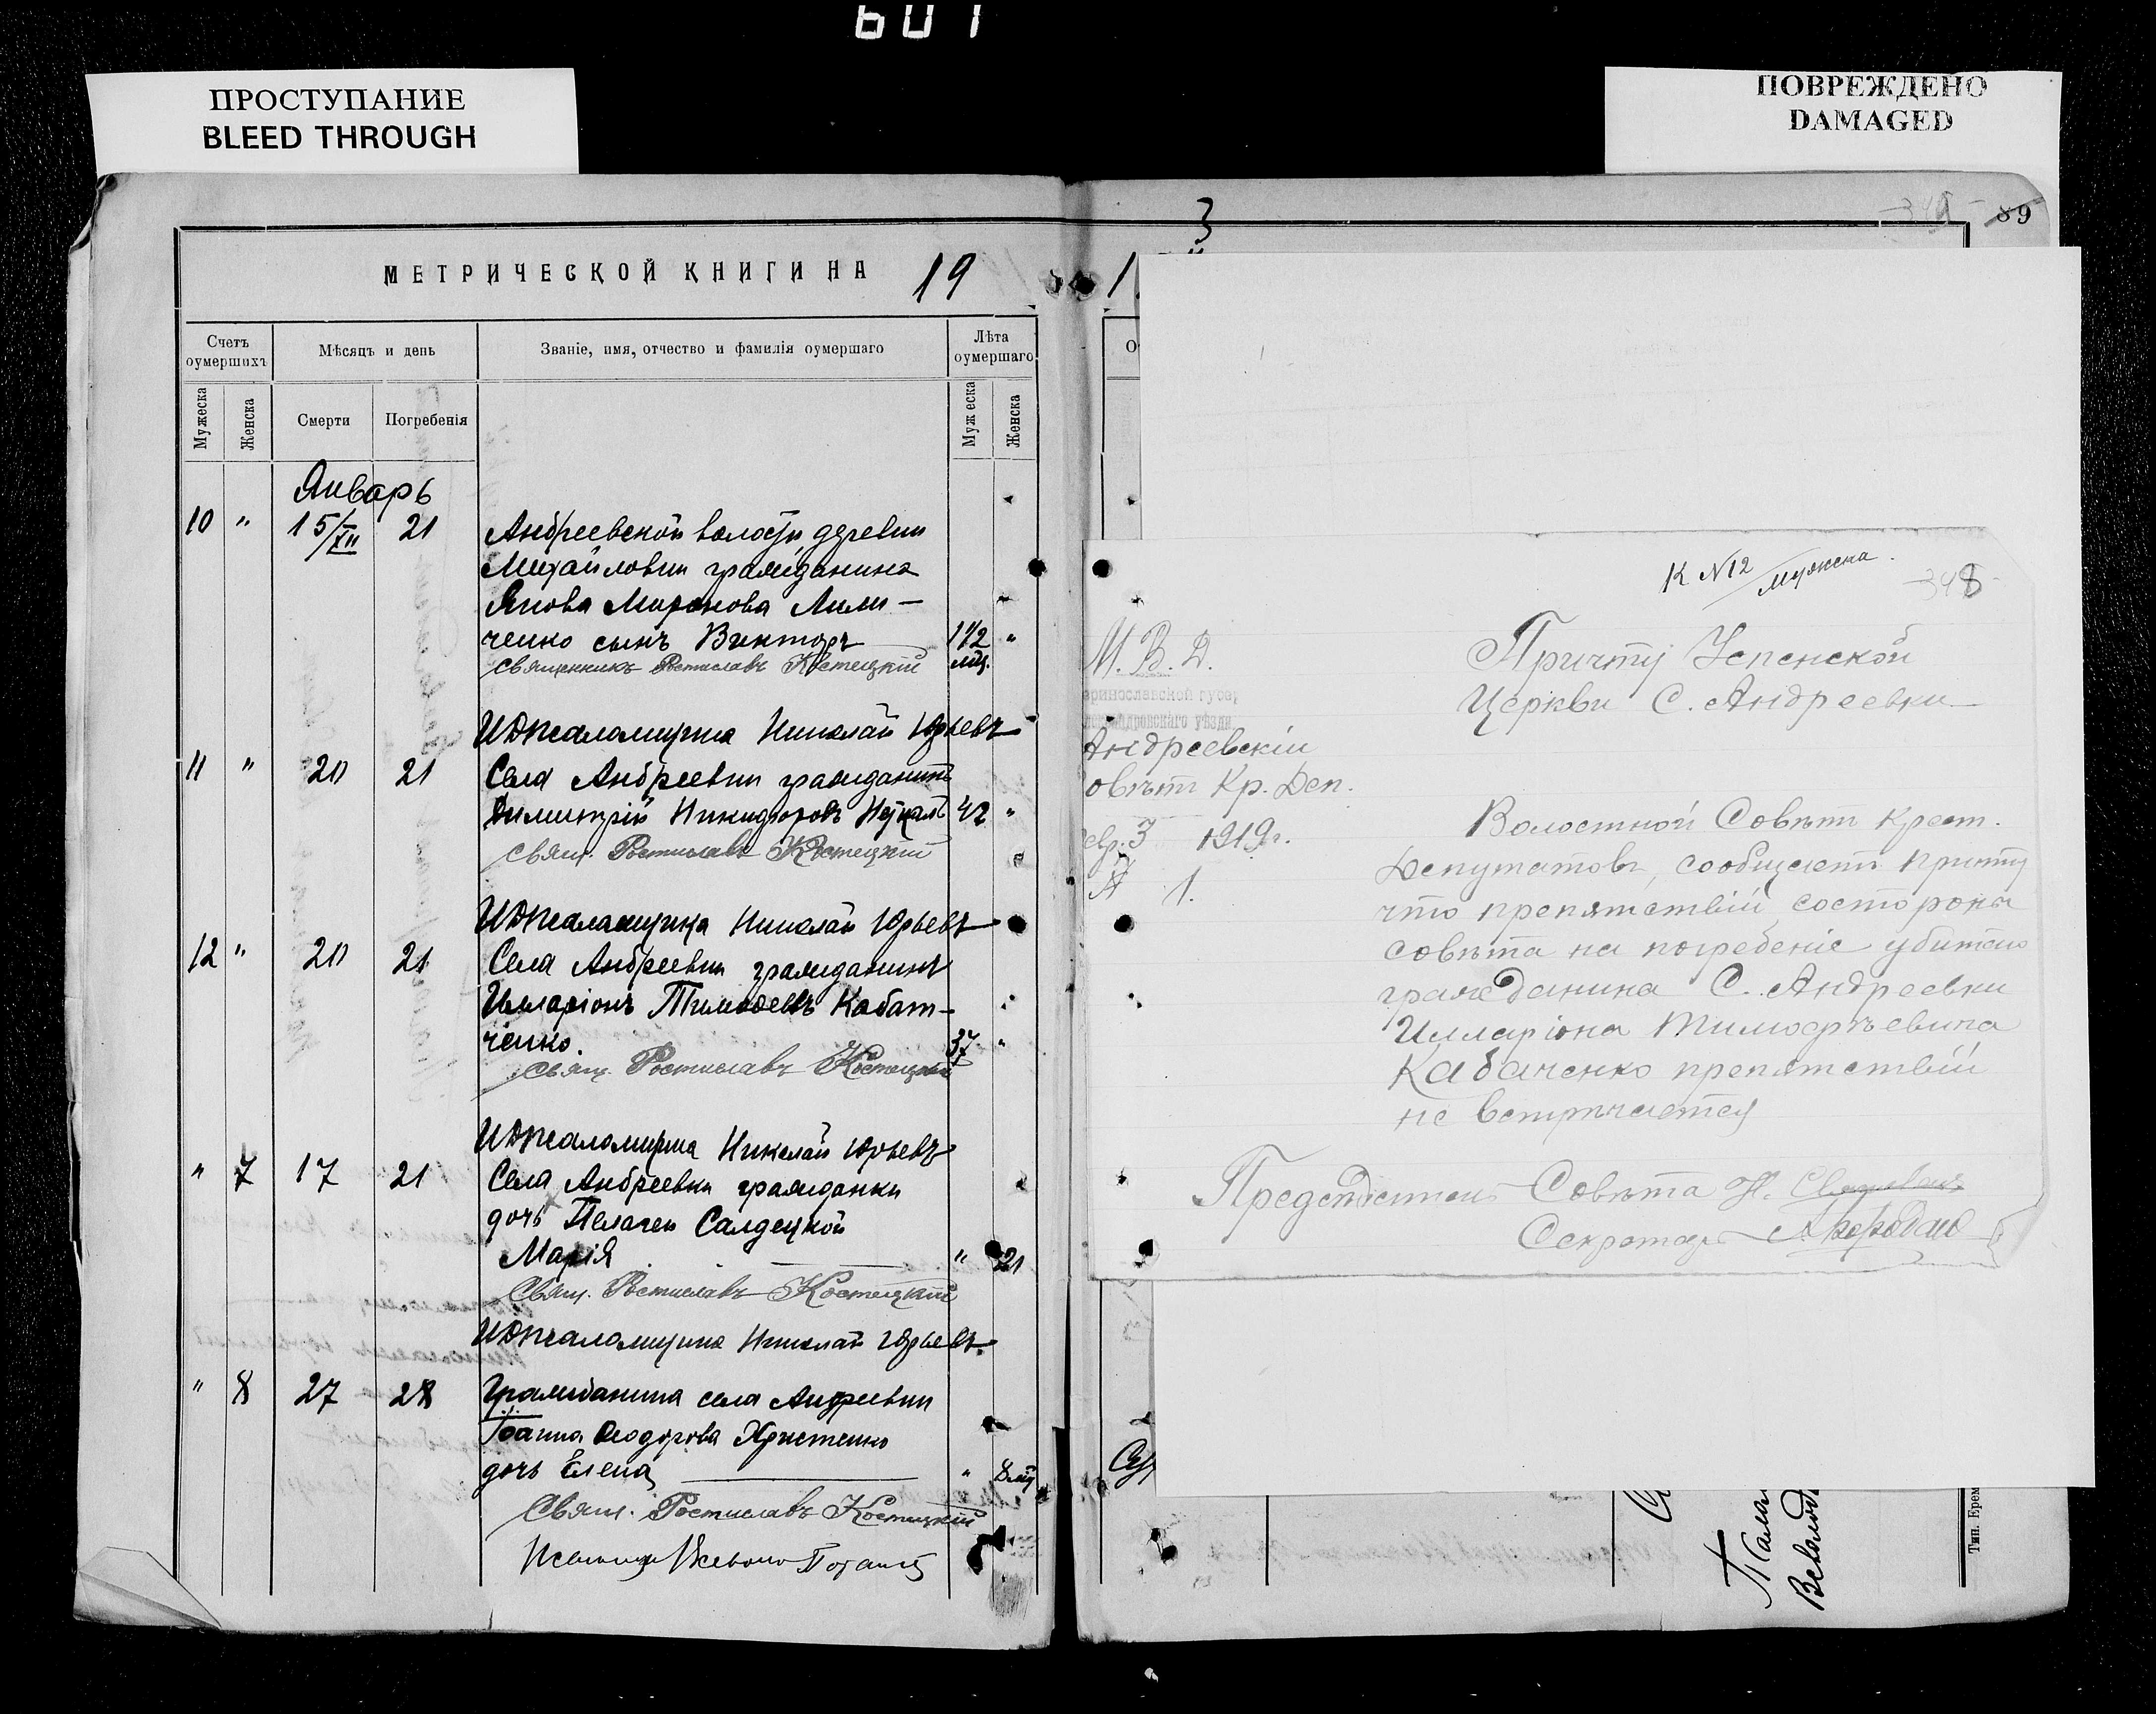 601
ПРОСТУПАНИЕ
BLEED THROUGH
ПОВРЕЖДЕНО
DAMAGED
МЕТРИЧЕСКОЙ КНИГИ НА 19
Счетъ оумершихъ
Мѣсяцъ и день
Званіе, имя, отчество и фамилія оумершаго
Лѣта оумершаго
Мужеска
Женска
Смерти
Погребенія
Мужеска
Женска
Январь
10 " 15/XII 21 Андреевской волости деревни
Михайловки гражданина
Якова Миронова
ченко сынъ Викторъ 1 1/2 "
Священникъ Ростиславъ Костецкій мѣс.
Николай Юрьевъ
11 " 20 21 Села Андреевки гражданинъ
Димитрій Никифоровъ 42 "
Свящ. Ростиславъ Костецкій
Николай Юрьевъ
12 " 20 21 Села Андреевки гражданинъ
Илларіонъ Тимофеевъ Кабат-
ченко. 37 "
Свящ. Ростиславъ Костецкій
Николай Юрьевъ
" 7 17 21 Села Андреевки гражданки
дочь Пелагеи Салдецкой
Марія " 21
Свящ. Ростиславъ Костецкій
Николай Юрьевъ
" 8 27 28 Гражданина села Андреевки
Іоанна Ѳеодорова Христенко
дочь Елена " 8 мѣ
Свящ. Ростиславъ Костецкій
3
89
К N 12 мужска.
348
М. В. Д.
Андреевскій
овѣтъ Кр. Деп.
евр. 3 1919 г.
№ 1.
Причту Успенской
Церкви С. Андреевки
Волостной Совѣтъ Крест.
Депутатовъ, сообщаетъ причту
что препятствій состороны
совѣта на погребеніе убитаго
гражданина С. Андреевки
Илларіона Тимофѣевича
Кабаченко препятствій
не встрѣчается
Председатель Совѣта Н.
Секретарь
Тип. Ерем